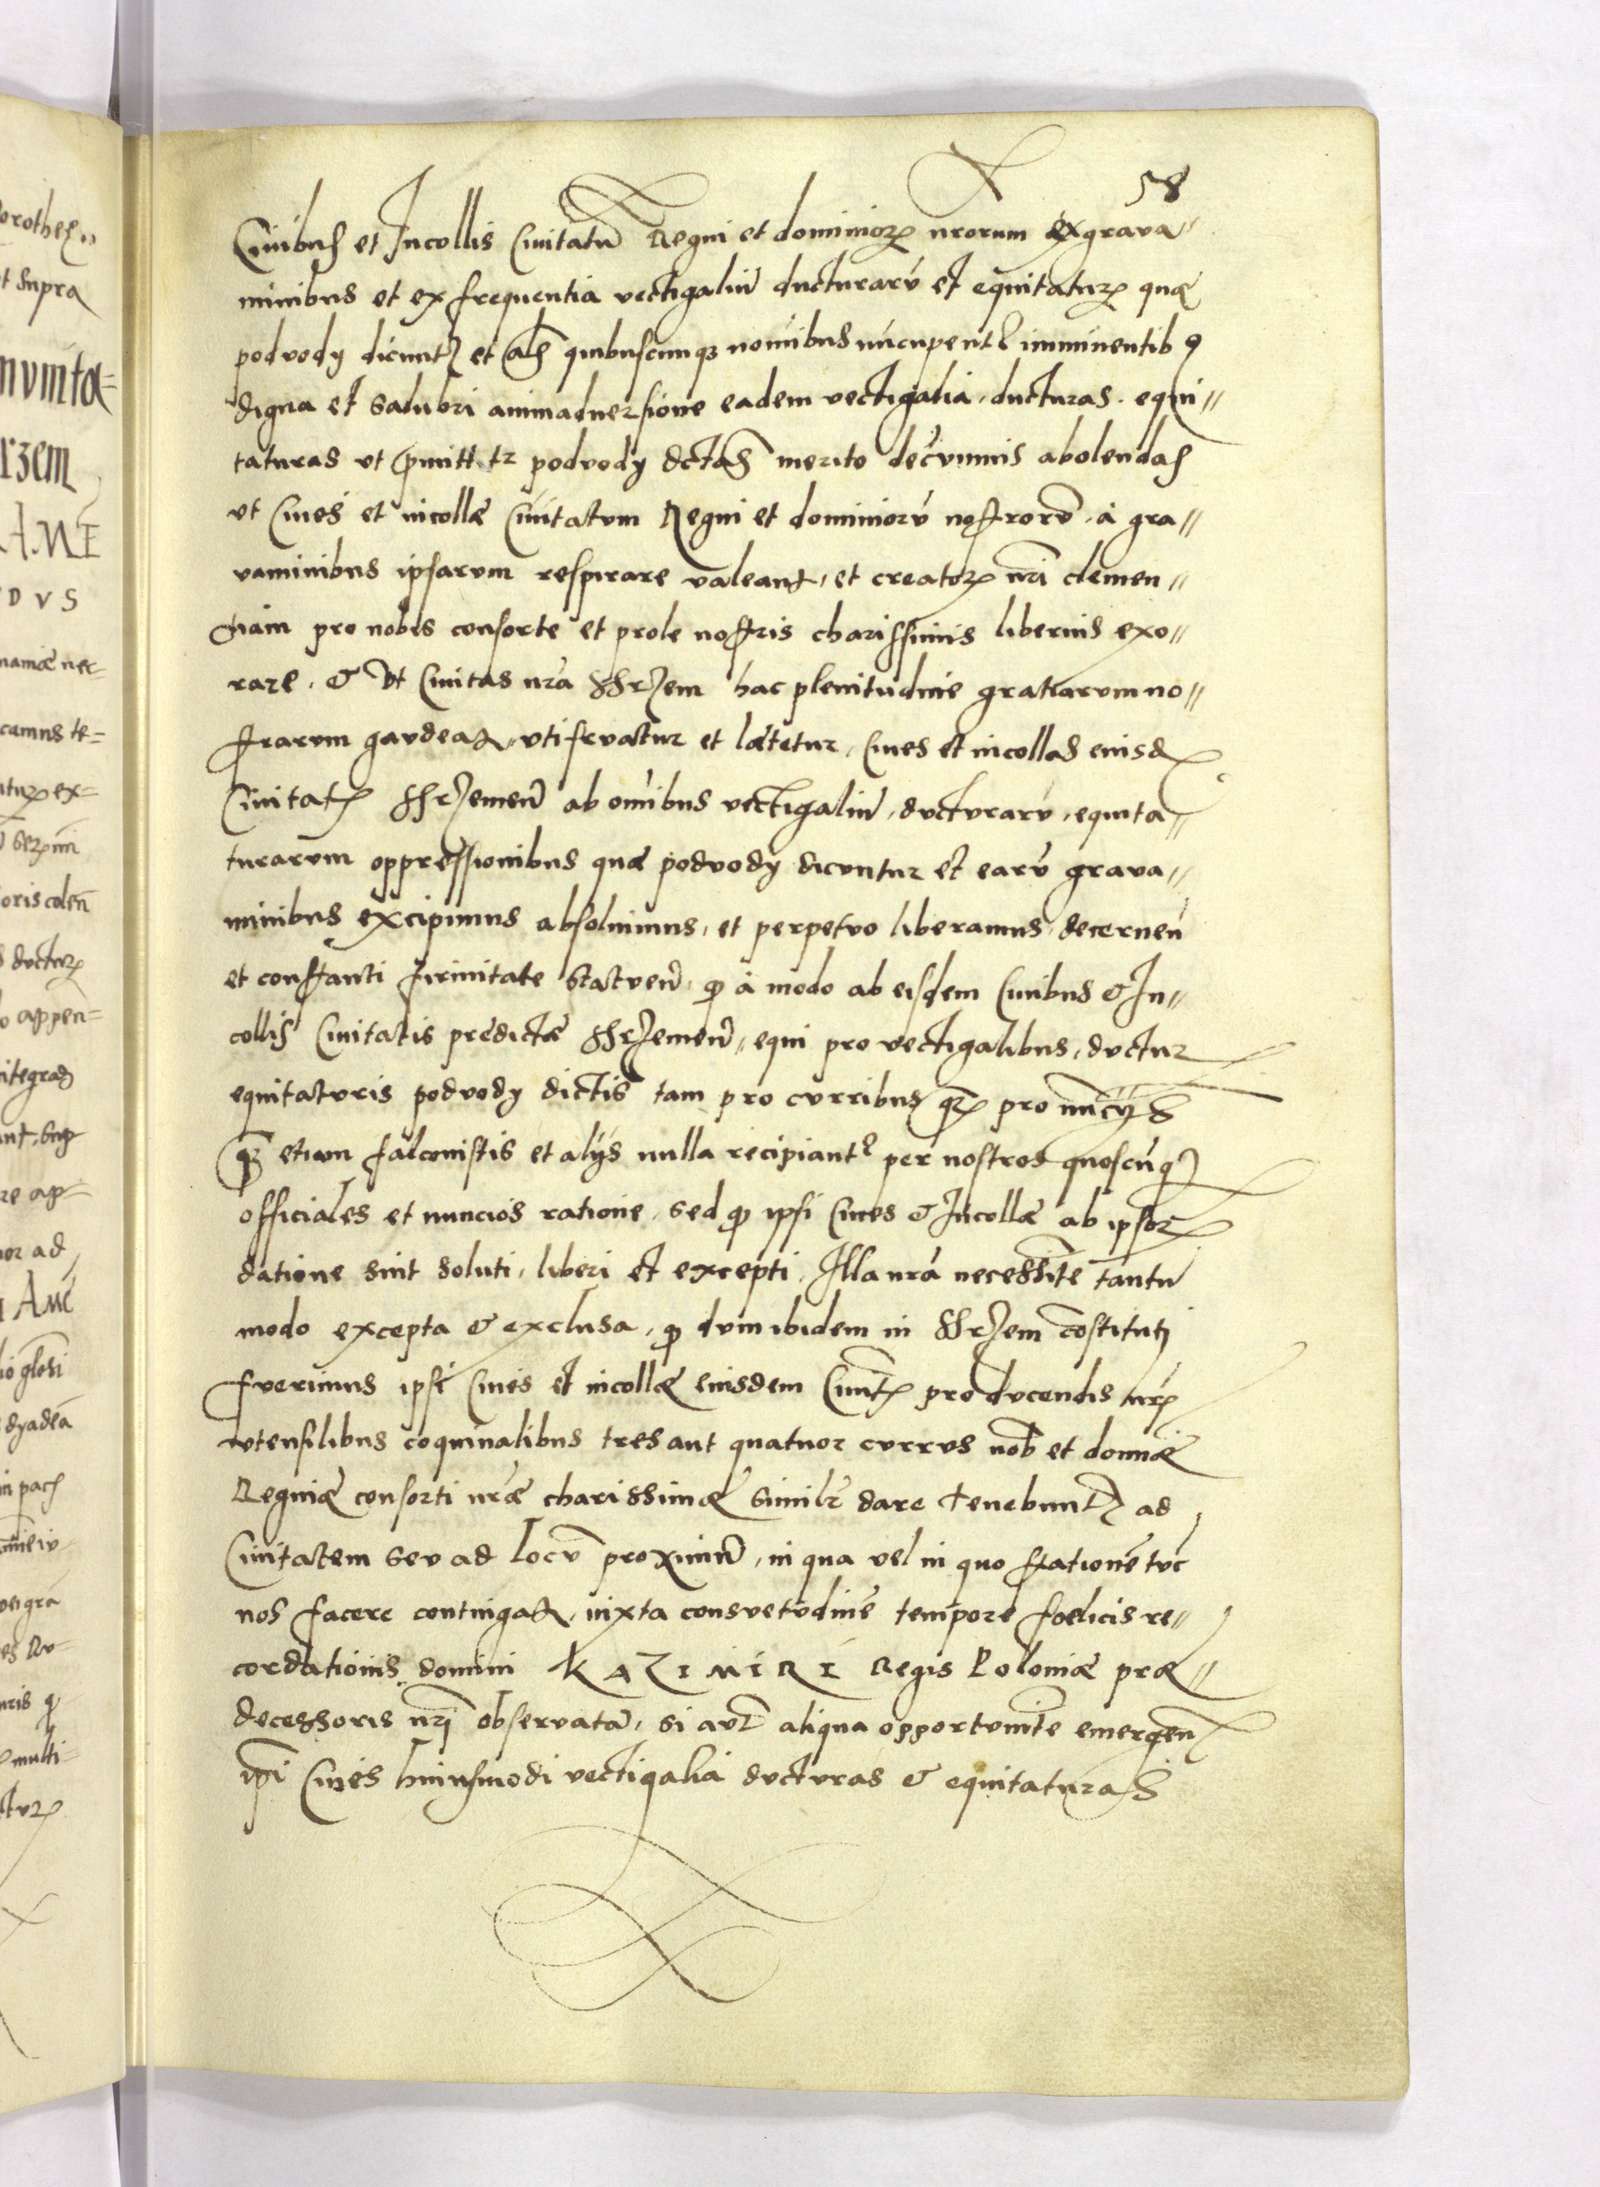 58
Ciuibus et Incollis Ciuitatũ Regni et dominioꝝ nrorum ex grava〃
minibus et ex frequentia vectigaliũ ducturarũ et equitaturꝝ quæ
podvody dicunt᷑ et alijs quibuscumqꝫ nominibus nũcupent᷑ imminentibꝰ
digna et salubri animaduersione eadem vectigalia, ducturas. equi〃
taturas vt p̄mitt.tr podvody dctas merito decrvimus abolendas
vt Ciues et incollæ Ciuitatvm Regni et dominiorũ nostrorũ, à gra〃
vaminibus ipsarvm respirare valeant, et creatoꝝ nr̃i clemen〃
tiam pro nobis consorte et prole nostris charissimis liberius exo〃
rare. & Vt Ciuitas nr̃a Ssrzem hac plenitudine gratiarvm no〃
strarvm gavdeat, vti frvatur et lætetur, Ciues et incollas eiusdꝫ
Ciuitatꝭ Ssrzemeñ ab omĩbus vectigaliũ, dvctvrarũ, equita〃
turarvm oppressionibus quæ podvody dicvntur et earũ grava〃
minibus excipimus absoluimus, et perpetvo liberamus, decerneñ
et constanti firmitate statveñ, ꝙ à modo ab eisdem Ciuibus & In〃
collis Ciuitatis predictæ Ssrzemeñ, equi pro vectigalibus, dvctur
equitatvris podvody dictis tam pro cvrribus qꝫ pro nuncijs
qꝫ etiam falconistis et alijs nulla recipiant᷑ per nostros quoscũqꝫ
officiales et nuncios ratione, sed ꝙ ipsi Ciues & Incollæ ab ipsoꝝ
datione sint soluti, liberi et excepti, Illa nr̃a necessitẽ tantũ
modo excepta & exclusa, ꝙ dvm ibidem in Ssrzem cõstituti
fverimus ipsi Ciues et incollæ eiusdem Ciuitꝭ pro dvcendis nrꝭ
vtensilibus coquinalibus tres aut quatuor cvrrvs nob̃ et domĩæ
Reginæ consorti nr̃æ charissimæ similr̃ dare tenebunt᷑ ad
Ciuitatem sev ad locũ proximũ, in qua vel in quo stationẽ tvc
nos facere contingat, iuxta consvetvdinẽ tempore fœlicis re〃
cordationis domini KAZIMIRI Regis Poloniæ præ〃
decessoris nr̃i observatã, si avt̃ aliqua opportvnitẽ emergeñ
ip̃i Ciues huiusmodi vectigalia dvctvras & equitaturas